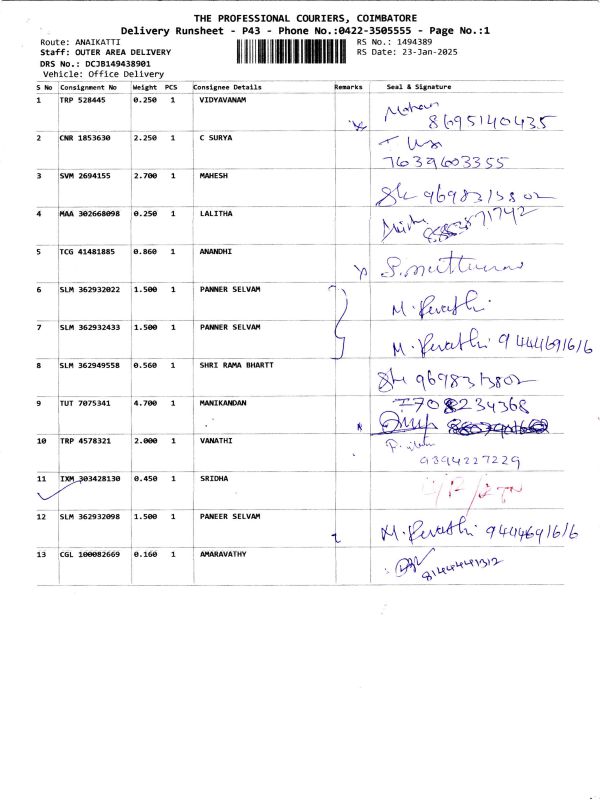 THE PROFESSIONAL COURIERS, COIMBATORE
Delivery Runsheet - P43 - Phone No.:0422-3505555 - Page No.:1
Route: ANAIKATTI RS No.: 1494389
Staff: OUTER AREA DELIVERY RS Date: 23-Jan-2025
DRS No.: DCJB149438901
Vehicle: Office Delivery
S No Consignment No Weight PCS Consignee Details Remarks Seal & Signature
1 TRP 528445 0.250 1 VIDYAVANAM Mohan
8695140435
2 CNR 1853630 2.250 1 C SURYA
7639603355
3 SVM 2694155 2.700 1 MAHESH
9698313802
4 MAA 302668098 0.250 1 LALITHA
5 TCG 41481885 0.860 1 ANANDHI
6 SLM 362932022 1.500 1 PANNER SELVAM M. Revathi
7 SLM 362932433 1.500 1 PANNER SELVAM M. Revathi 9444691616
8 SLM 362949558 0.560 1 SHRI RAMA BHARTT
9698313802
9 TUT 7075341 4.700 1 MANIKANDAN
10 TRP 4578321 2.000 1 VANATHI
9394227229
11 IXM 303428130 0.450 1 SRIDHA
12 SLM 362932098 1.500 1 PANEER SELVAM M. Revathi 9444691616
13 CGL 100082669 0.160 1 AMARAVATHY
8144441312